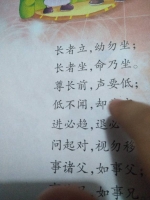 长者立，幼勿坐；
长者坐，命乃坐。
尊长前，声要低；
低不闻，却
进必趋，退
问起对，视勿
事诸父，如事父
事诸兄，如事兄